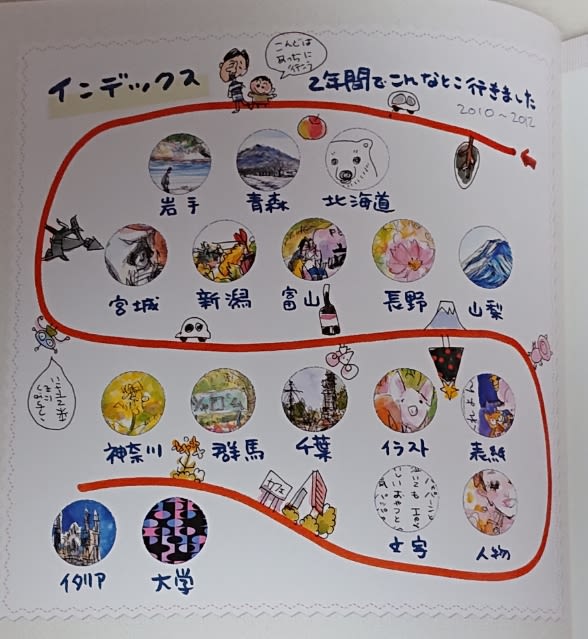 インデックス
こんどは
あっちに
行こう
2年間でこんなとこ行きました
2010〜2012
岩手
青森
北海道
宮城
新潟
富山
長野
山梨
神奈川
群馬
千葉
イラスト
表紙
文字
人物
イタリア
大学